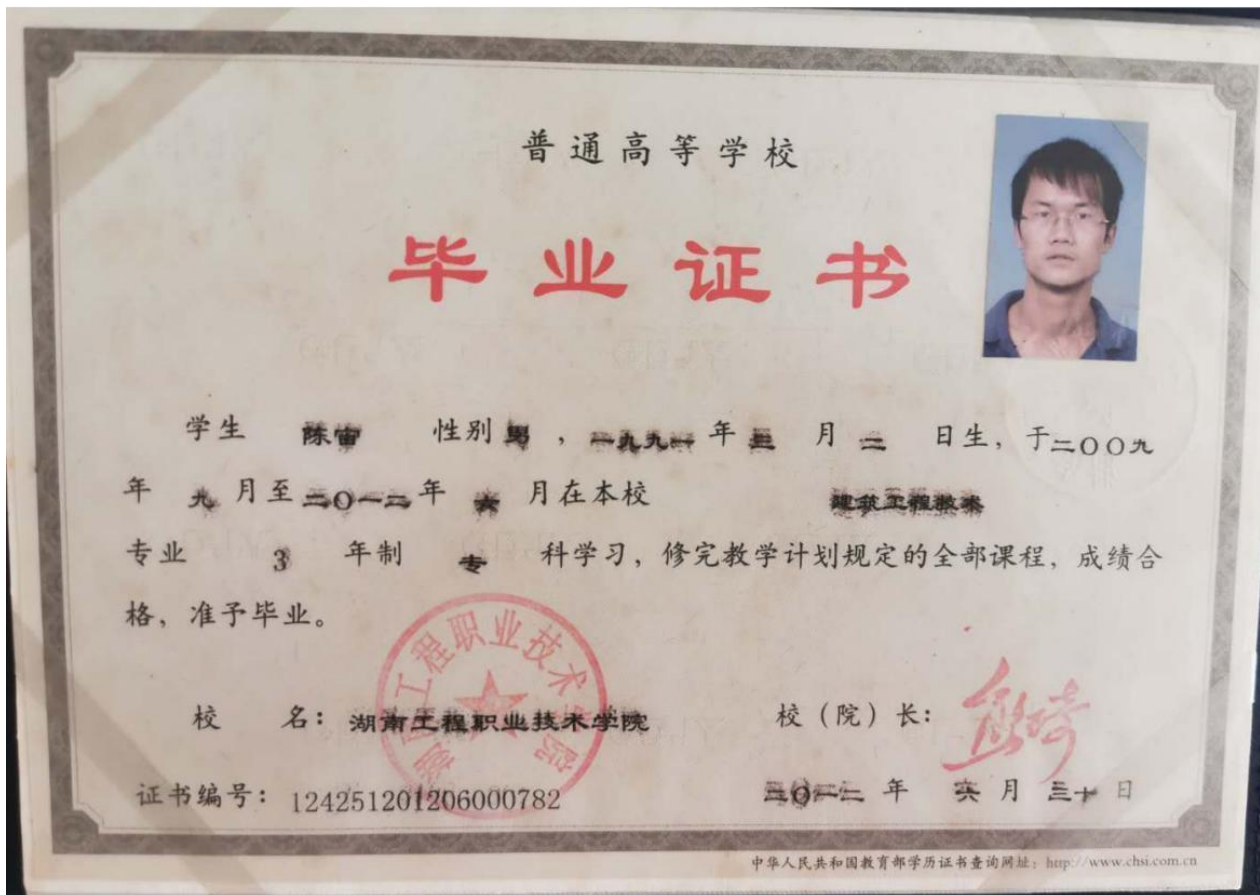 普通高等学校
毕业证书
学生 陈宙 性别 男，一九九一年 三 月 二 日生，于二〇〇九
年 九 月至二〇一二年 六 月在本校 建筑工程技术
专业 3 年制 专 科学习，修完教学计划规定的全部课程，成绩合
格，准予毕业。
校 名：湖南工程职业技术学院 校（院）长：
证书编号：124251201206000782 二〇一二 年 六 月 三十 日
中华人民共和国教育部学历证书查询网址：http://www.chsi.com.cn
湖南工程职业技术学院